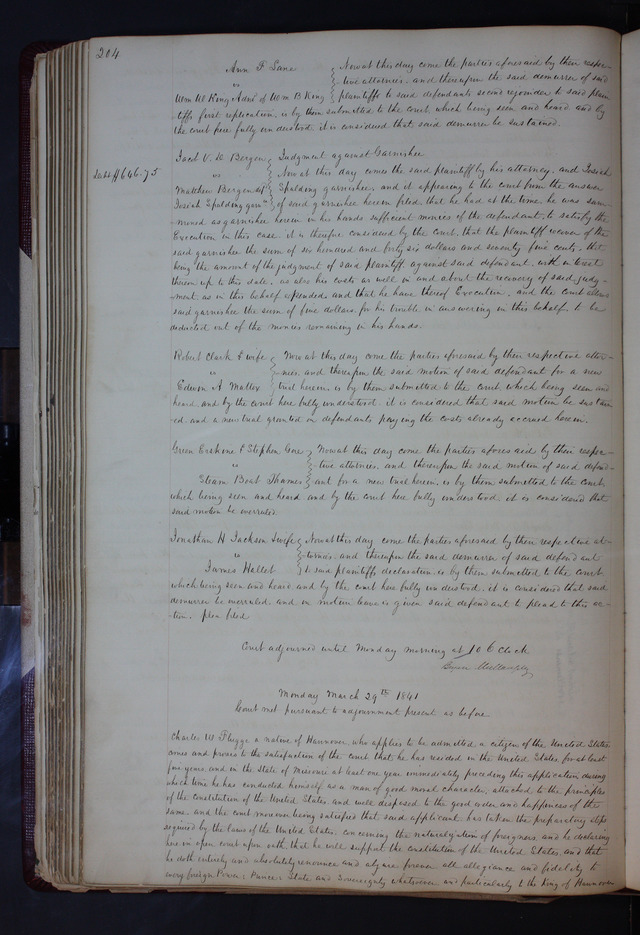 204
Ann F Lane } Now at this day come the parties aforesaid by their respec-
vs } tive attornies. and thereupon the said demurrer of said
Wm W King Admr of Wm B King } plaintiffs to said defendants second rejoinder to said plain
tiffs first replication, is by them submitted to the court, which being seen and heard and by
the court here fully understood it is considered that said demurrer be sustained.
Jacob V. D Bergen } Judgment against Garnishee
Debt $646.75 vs } Now at this day comes the said plaintiff by his attorney. and Josiah
Matthew Bergen & } Spalding garnishee, and it appearing to the court from the answer
Josiah Spalding garn } of said garnishee herein filed, that he had at the time he was sum-
moned as garnishee herein in his hands sufficient monies of the defendant, to satisfy the
Execution in this case. it is therefore considered by the court, that the plaintiff recover of the
said garnishee the sum of six hundred and forty six dollars and seventy five cents, that
being the amount of the judgment of said plaintiff against said defendant, with interest
thereon up to this date. as also his costs as well in and about the recovery of said judg-
ment, as in this behalf expended, and that he have thereof Execution. and the court allows
said garnishee the sum of five dollars for his trouble in answering in this behalf, to be
deducted out of the monies remaining in his hands.
Robert Clark & wife } Now at this day come the parties aforesaid by their respective attor-
vs } nies, and thereupon the said motion of said defendant for a new
Edwin A Mallex } trial herein, is by them submitted to the court which being seen and
heard and by the court here fully understood, it is considered that said motion be sustain
ed and a new trial granted on defendants paying the costs already accrued herein.
Green Erskine & Stephen Gore } Now at this day come the parties aforesaid by their respec-
vs } tive attornies, and thereupon the said motion of said defend-
Steam Boat Thames } ant for a new trial herein, is by them submitted to the court,
which being seen and heard and by the court here fully understood it is considered that
said motion be overruled.
Jonathan H Jackson & wife } Now at this day come the parties aforesaid by their respective at-
vs } tornies and thereupon the said demurrer of said defendant
James Hallet } to said plaintiffs declaration, is by them submitted to the court
which being seen and heard and by the court here fully understood. it is considered that said
demurrer be overruled. and on motion leave is given said defendant to plead to this ac-
tion. plea filed
Court adjourned until Monday morning at 10 O Clock
Bryan Mullanphy
Monday March 29th 1841
Court met pursuant to adjournment present as before
Charles W Flugge a native of Hannover, who applies to be admitted a citizen of the United States
comes and proves to the satisfaction of the court that he has resided in the United States for at least
five years and in the state of Missouri at least one year immediately preceding this application, during
which time he has conducted himself as a man of good moral character, attached to the principles
of the constitution of the United States and well disposed to the good order and happiness of the
same. and the court moreover being satisfied that said applicant has taken the preparatory steps
required by the laws of the United States, concerning the naturalization of foreigners, and he declaring
here in open court upon oath, that he will support the constitution of the United States, and that
he doth entirely and absolutely renounce and abjure forever all allegiance and fidelity to
every foreign Power, Prince, State and Sovereignty whatsoever, and particularly to the King of Hannover